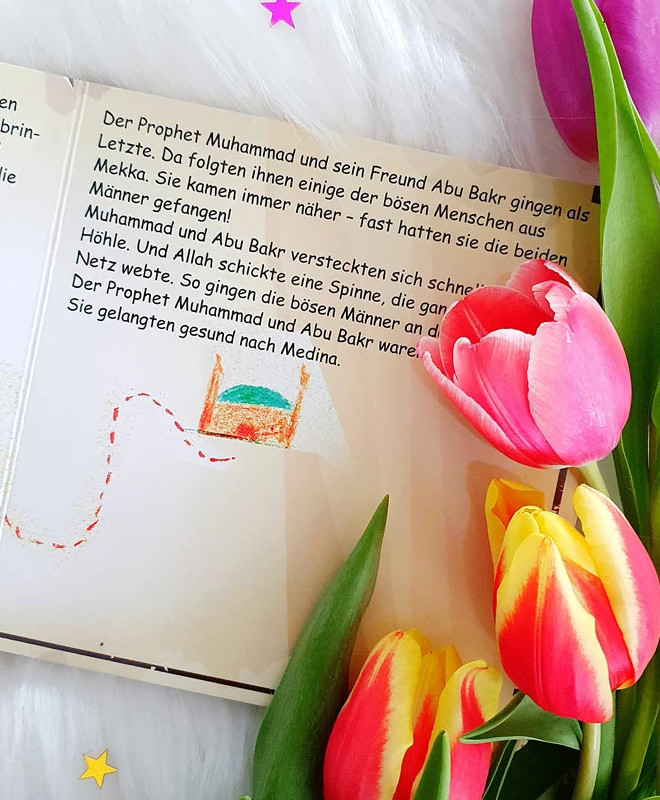 en
brin-
lie
Der Prophet Muhammad und sein Freund Abu Bakr gingen als
Letzte. Da folgten ihnen einige der bösen Menschen aus
Mekka. Sie kamen immer näher – fast hatten sie die beiden
Männer gefangen!
Muhammad und Abu Bakr versteckten sich
Höhle. Und Allah schickte eine Spinne, die
Netz webte. So gingen die bösen Männer an
Der Prophet Muhammad und Abu Bakr
Sie gelangten gesund nach Medina.